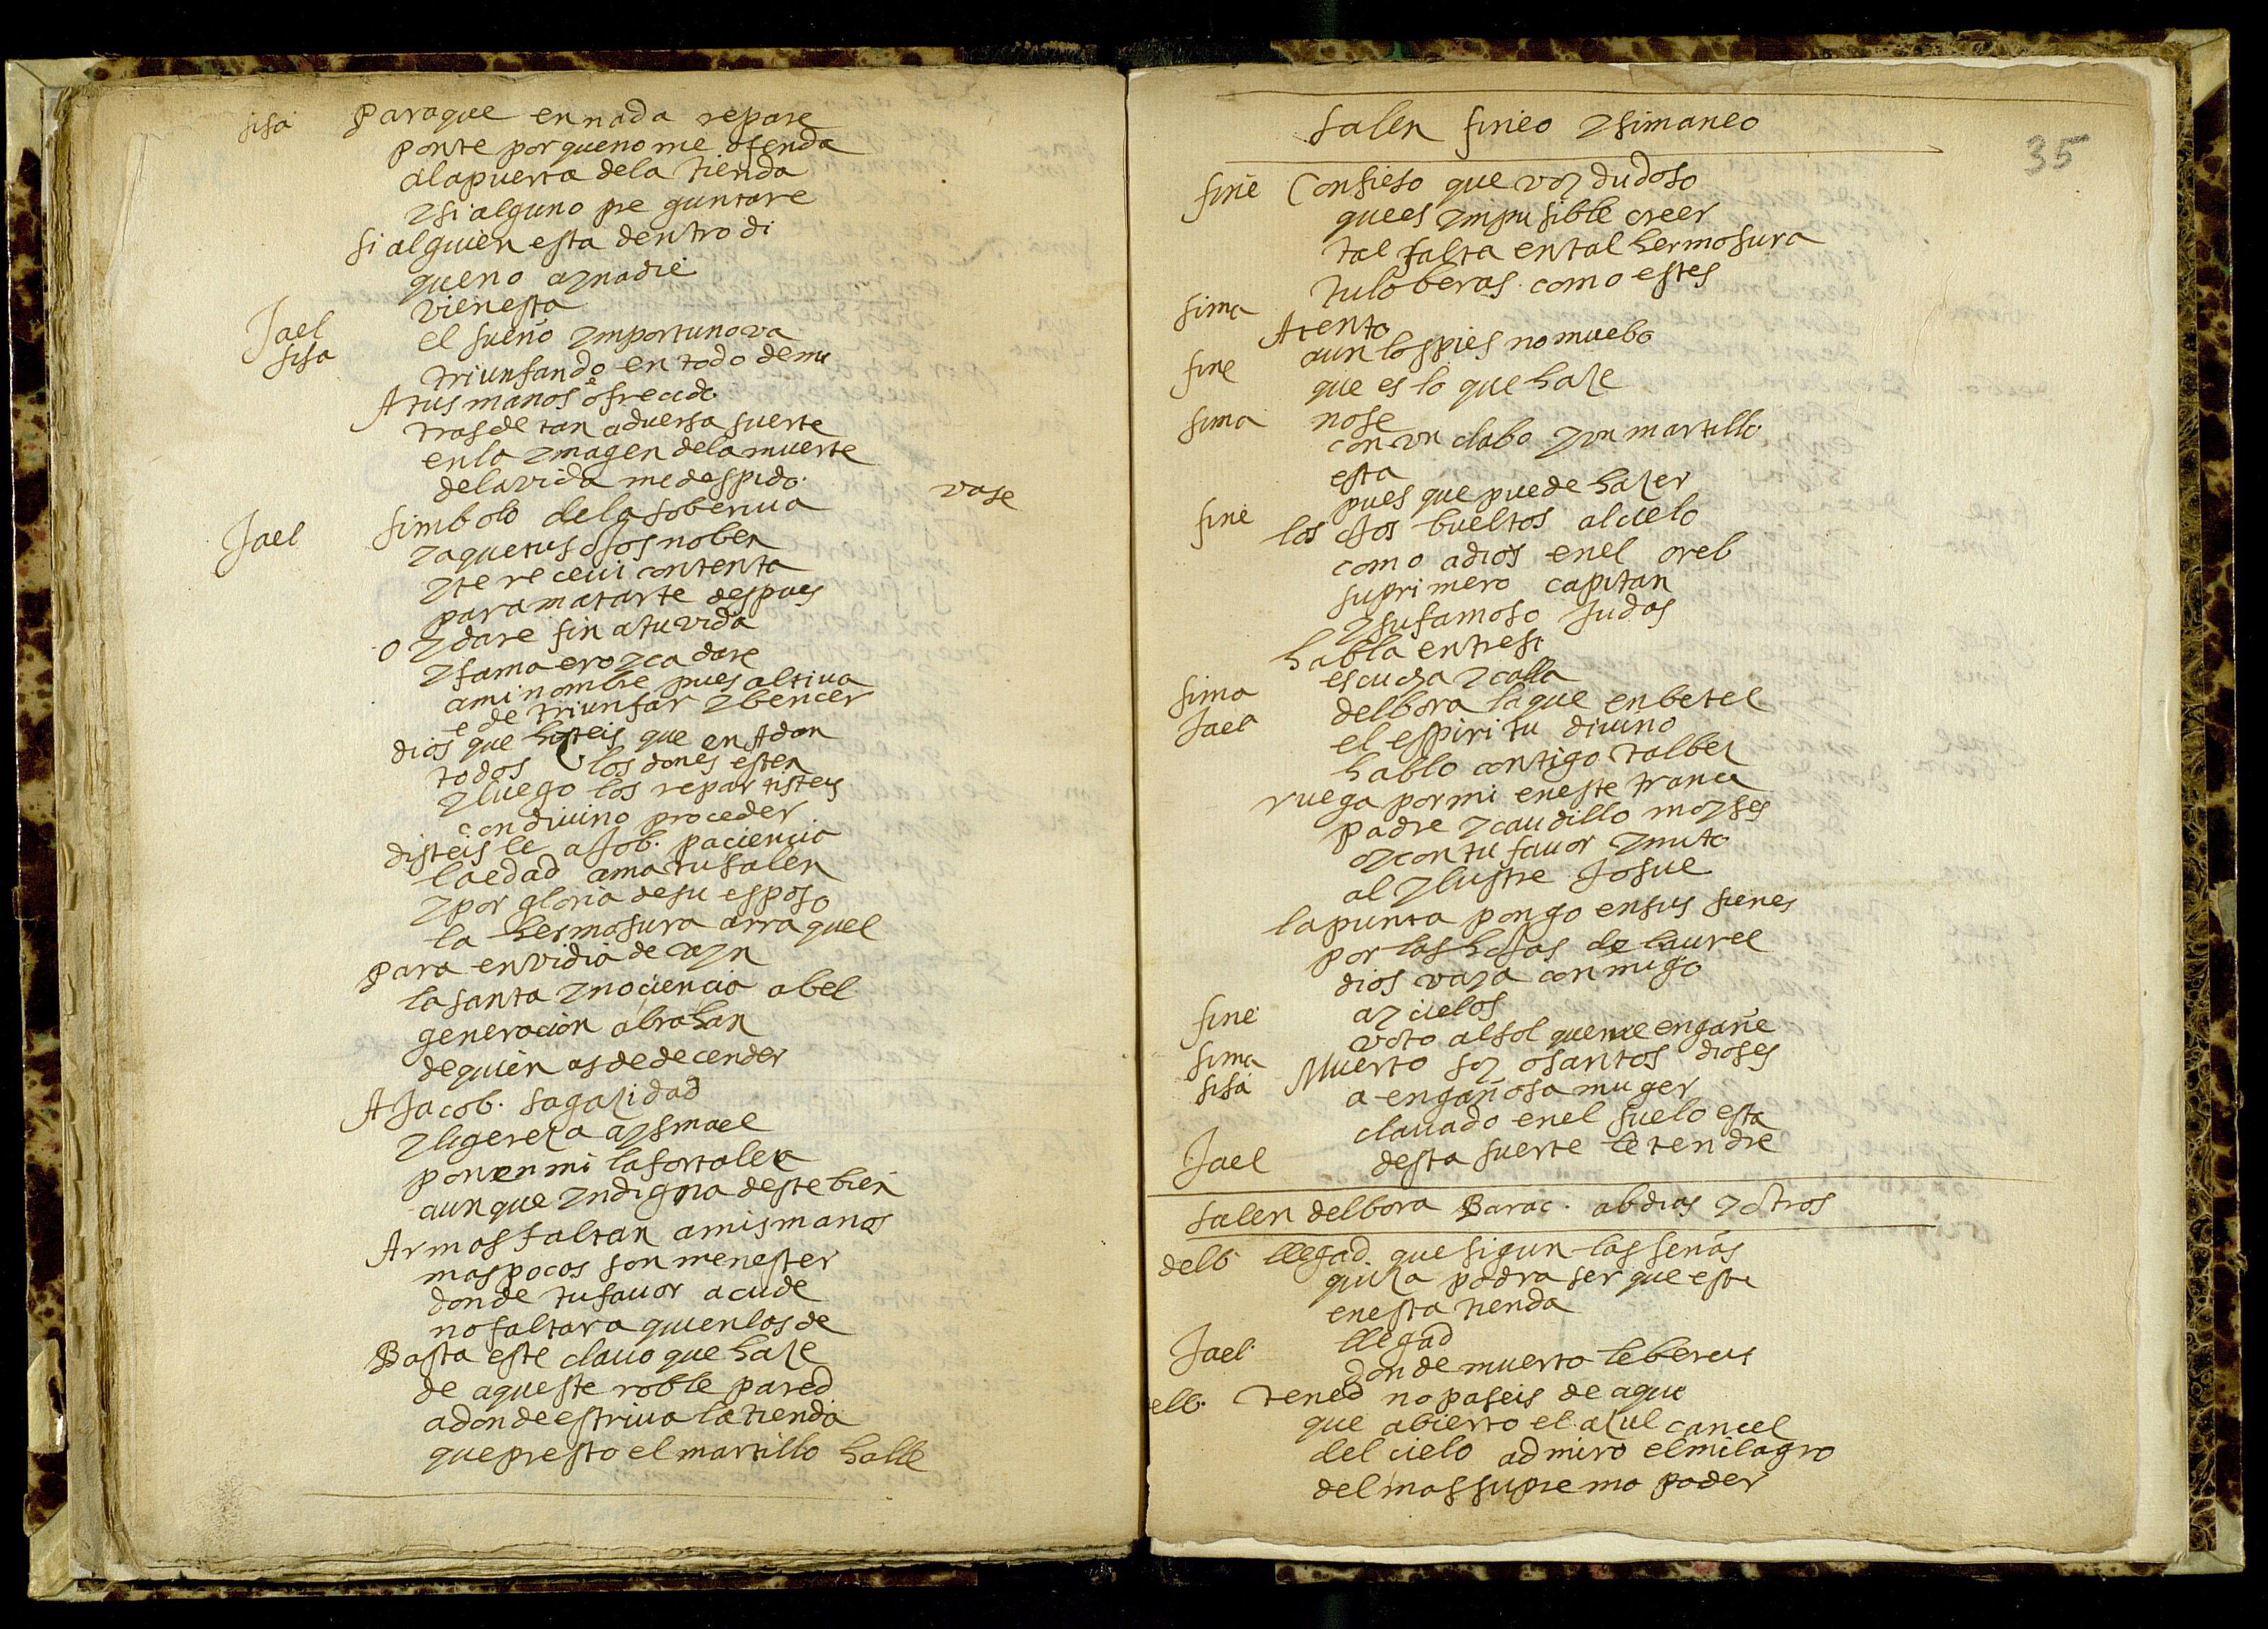 sisa Paraque ennada repare
ponte porqueno me ofenda
alapuerta dela tienda
ysialguno pre guntare
si alguien esta dentro di
queno aynadie
Jael vienesta
sisa el sueño ymportunova
triunfando en todo demi
A tus manos ofrecido
tras de tan aduersa suerte
enla ymagen dela muerte
delavida medespido. vase
Jael simbolo dela soberuia
yaquetus ojos noben
yte receui contenta
paramatarte despues
o ydare fin atuvida
yfama eroyca dare
ami nombre pues altiua
e de triunfar ybencer
dios que histeis que en Adan
todos los dones esten
yluego los repartisteis
condiuino proceder
disteis le a Job. paciencia
laedad amatusalen
ypor gloria desu esposo
la hermosura arraquel
Para envidia de cayn
lasanta ynociencia abel
generacion abrahan
dequien as de decender
A Jacob. sagazidad
yligereza aysmael
ponenmi lafortaleza
aunque yndigna deste bien
Armas faltan amismanos
mas pocas son menester
donde tufauor acude
nofaltara quienlas de
Basta este clauo que haze
de aqueste roble pared
adondeestriua latienda
quepresto el martillo halle
35
salen fineo ysimaneo
fine Confieso que voy dudoso
quees ympusible creer
tal falta ental hermosura
sima tuloberas como estes
Atento
fine aun lospies nomuebo
que es lo que haze
sima nose
con vn clabo yvn martillo
esta
fine pues que puede hazer
los ojos bueltos alcielo
como adios enel oreb
suprimero capitan
ysufamoso Judas
habla entresi
sima escucha ycalla
Jael delbora laque enbetel
el espiritu diuino
hablo contigo talbez
ruega pormi eneste trance
padre ycaudillo moyses
oycontu fauor ymito
al ylustre Josue
lapunta pongo ensus sienes
por las hojas de laurel
dios vaya conmigo
fine ay cielos
sima voto alsol queme engañe
sisa Muerto soy osantos dioses
a engañosa muger
clauado enel suelo esta
Jael desta suerte letendre
salen delbora Barac. abdias yotros
delb llegad que sigun las señas
quiza podra ser que este
enesta tienda
Jael llegad
donde muerto lebereis
elb. tened nopaseis de aqui
que abierto el azul cancel
del cielo admiro elmilagro
delmas supremo poder